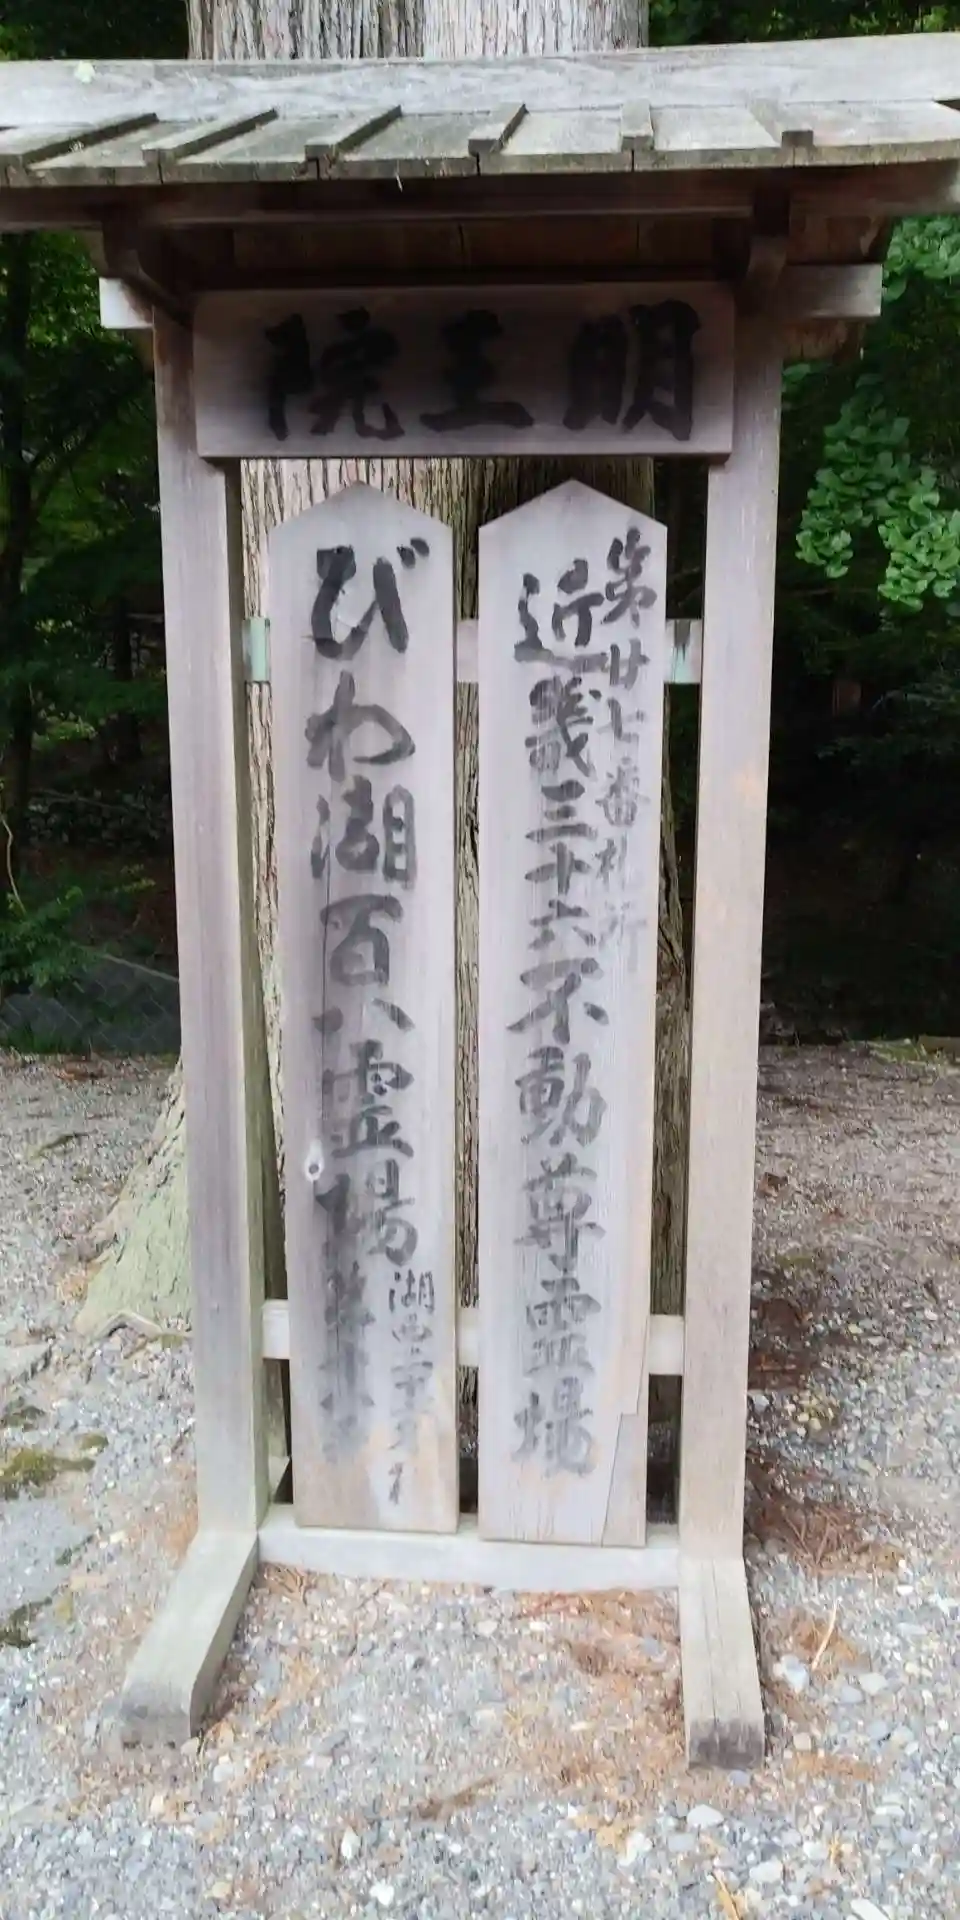 明王院
第廿七番札所
近畿三十六不動尊霊場
びわ湖百八霊場
湖西二十